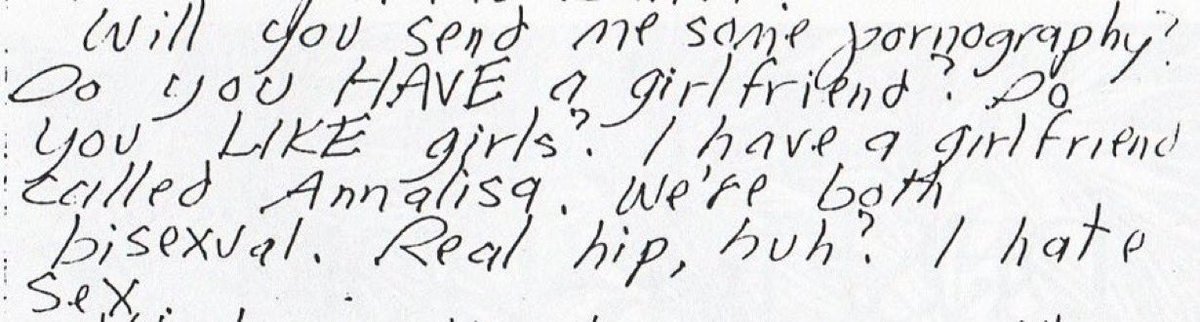 Will you send me some pornography?
Do you HAVE a girlfriend? Do
you LIKE girls? I have a girlfriend
called Annalisa. We're both
bisexual. Real hip, huh? I hate
sex.